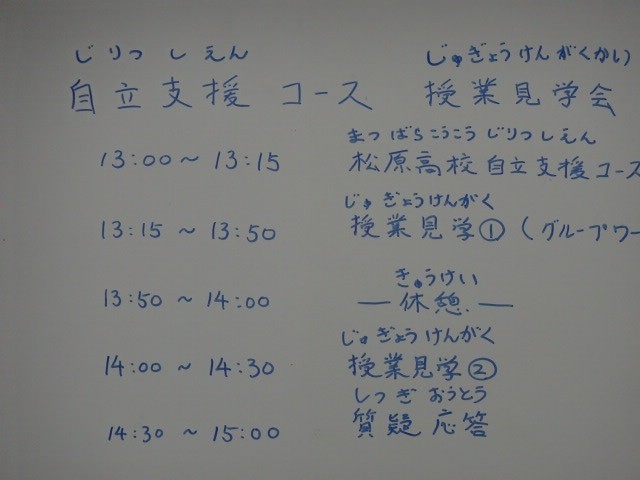 じりつしえん じゅぎょうけんがくかい
自立支援 コース 授業見学会
まつばらこうこう じりつしえん
13:00 ~ 13:15 松原高校 自立支援コース
じゅぎょうけんがく
13:15 ~ 13:50 授業見学① (グループワー
きゅうけい
13:50 ~ 14:00 — 休憩 —
じゅぎょうけんがく
14:00 ~ 14:30 授業見学②
しつぎ おうとう
14:30 ~ 15:00 質疑応答